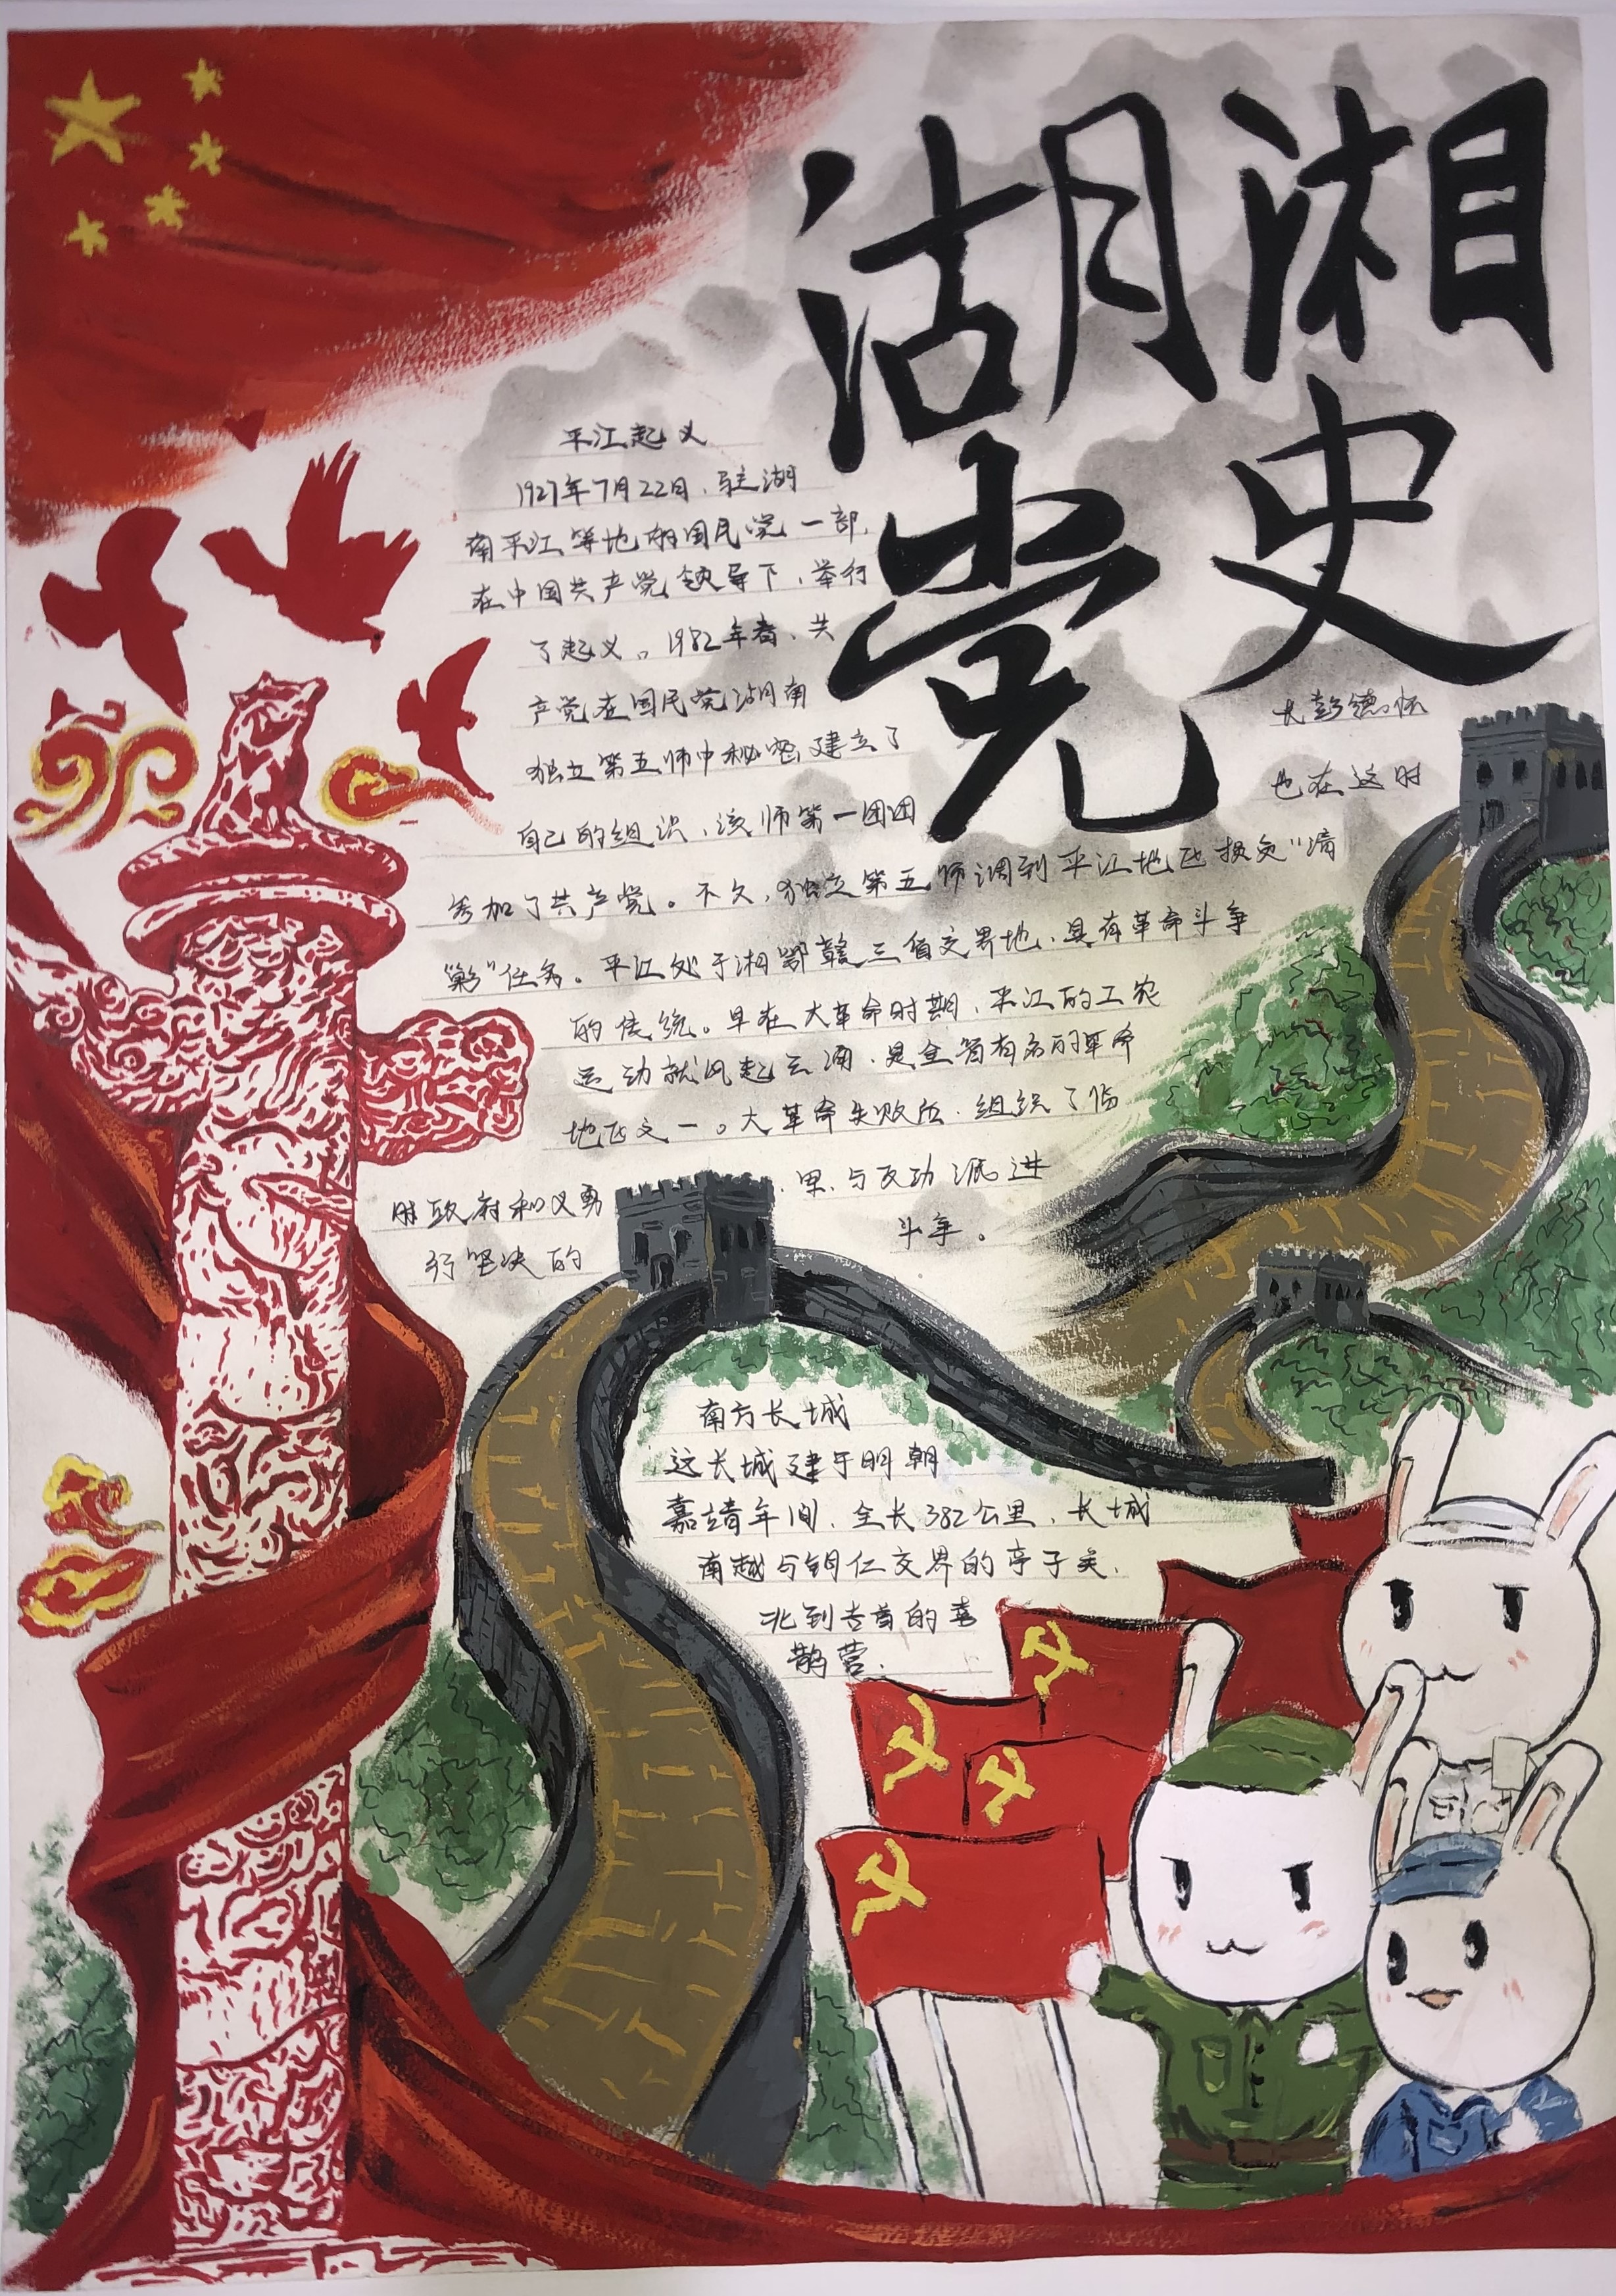 湖湘
党史
平江起义
1927年7月22日、驻湖
南平江等地的国民党一部,
在中国共产党领导下,举行
了起义。1982年春、共
产党在国民党湖南
独立第五师中秘密建立了
自己的组织,该师第一团团
长彭德怀
也在这时
参加了共产党。不久,独立第五师调到平江地区换交"清
"任务。平江处于湘鄂赣三省交界地、具有革命斗争
的传统。早在大革命时期,平江的工农
运动就风起云涌,是全省有名的革命
地区之一。大革命失败后,组织了临
时政府和义勇
果,与反动派进
行坚决的
斗争。
南方长城
这长城建于明朝
嘉靖年间,全长382公里,长城
南越与铜仁交界的亭子关,
北到吉首的喜
鹊营.